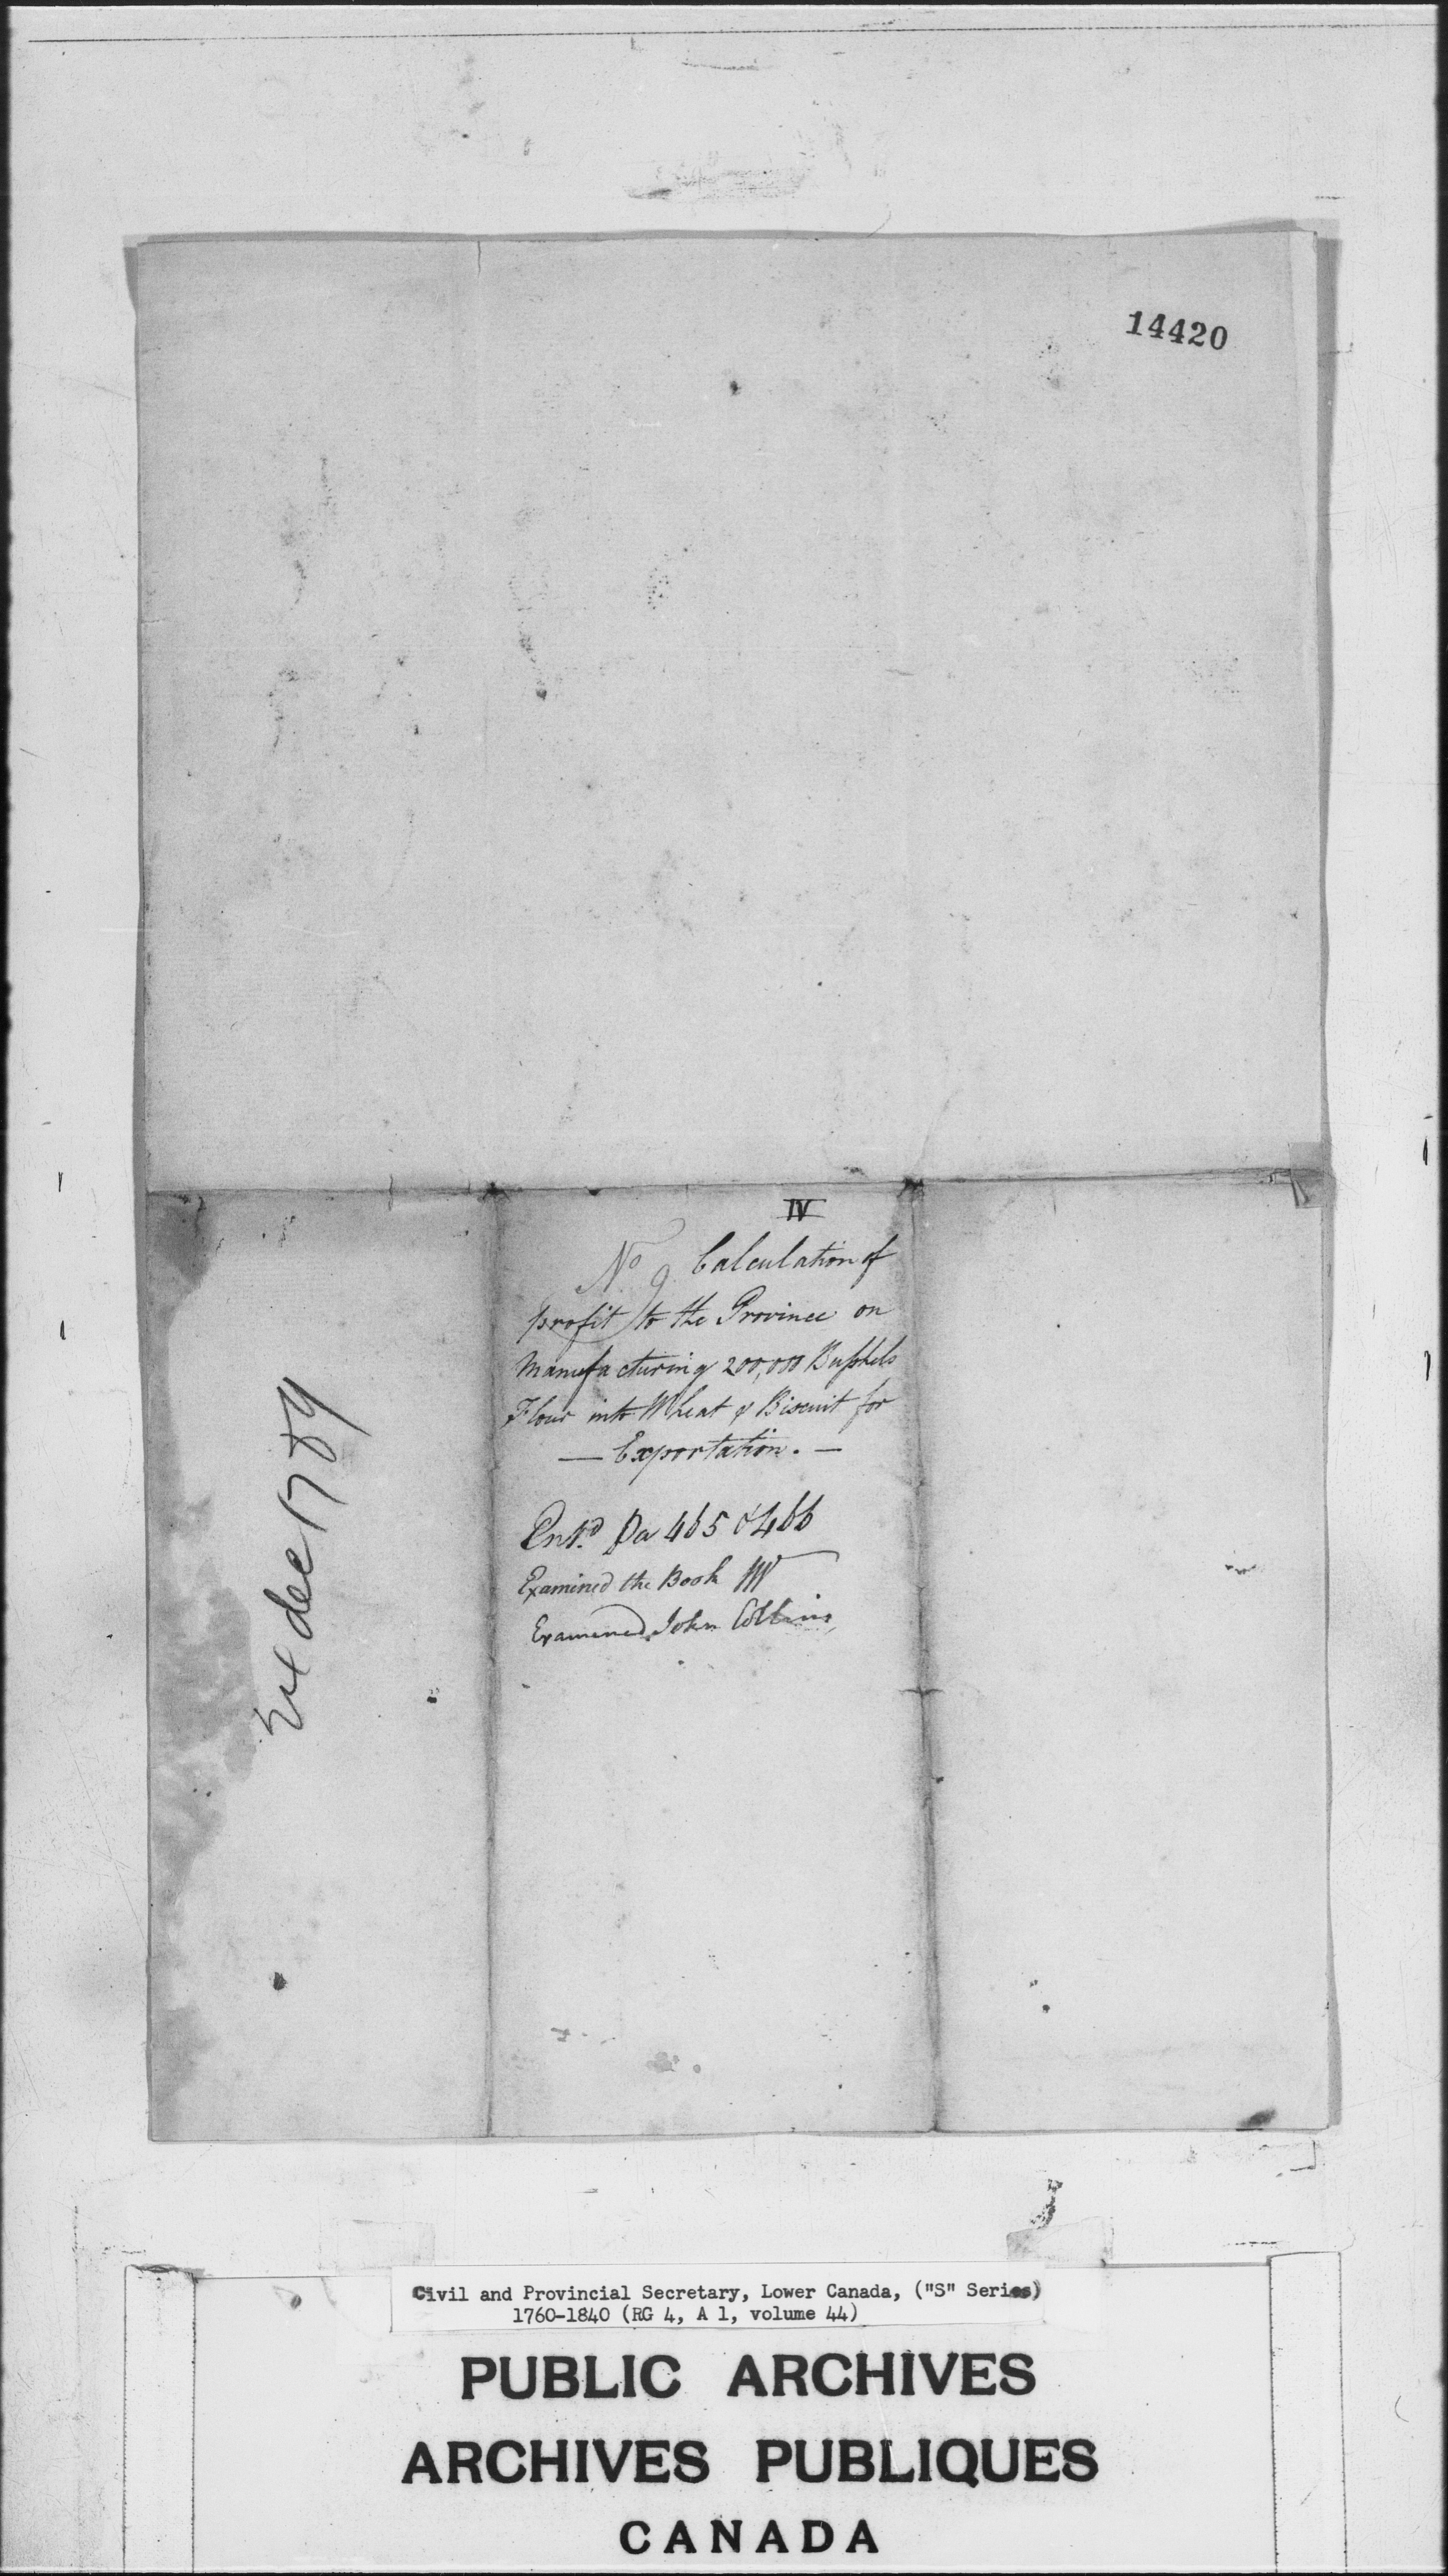 14420
IV
No 9 Calculation of
profit to the Province on
Manufacturing 200,000 Bushels
Flour into Wheat & Biscuit for
— Exportation. —
Entd. Pa 465 & 466
Examined the Book JW
Examined John Collins
dec 1789
Civil and Provincial Secretary, Lower Canada, ("S" Series)
1760-1840 (RG 4, A 1, volume 44)
PUBLIC ARCHIVES
ARCHIVES PUBLIQUES
CANADA